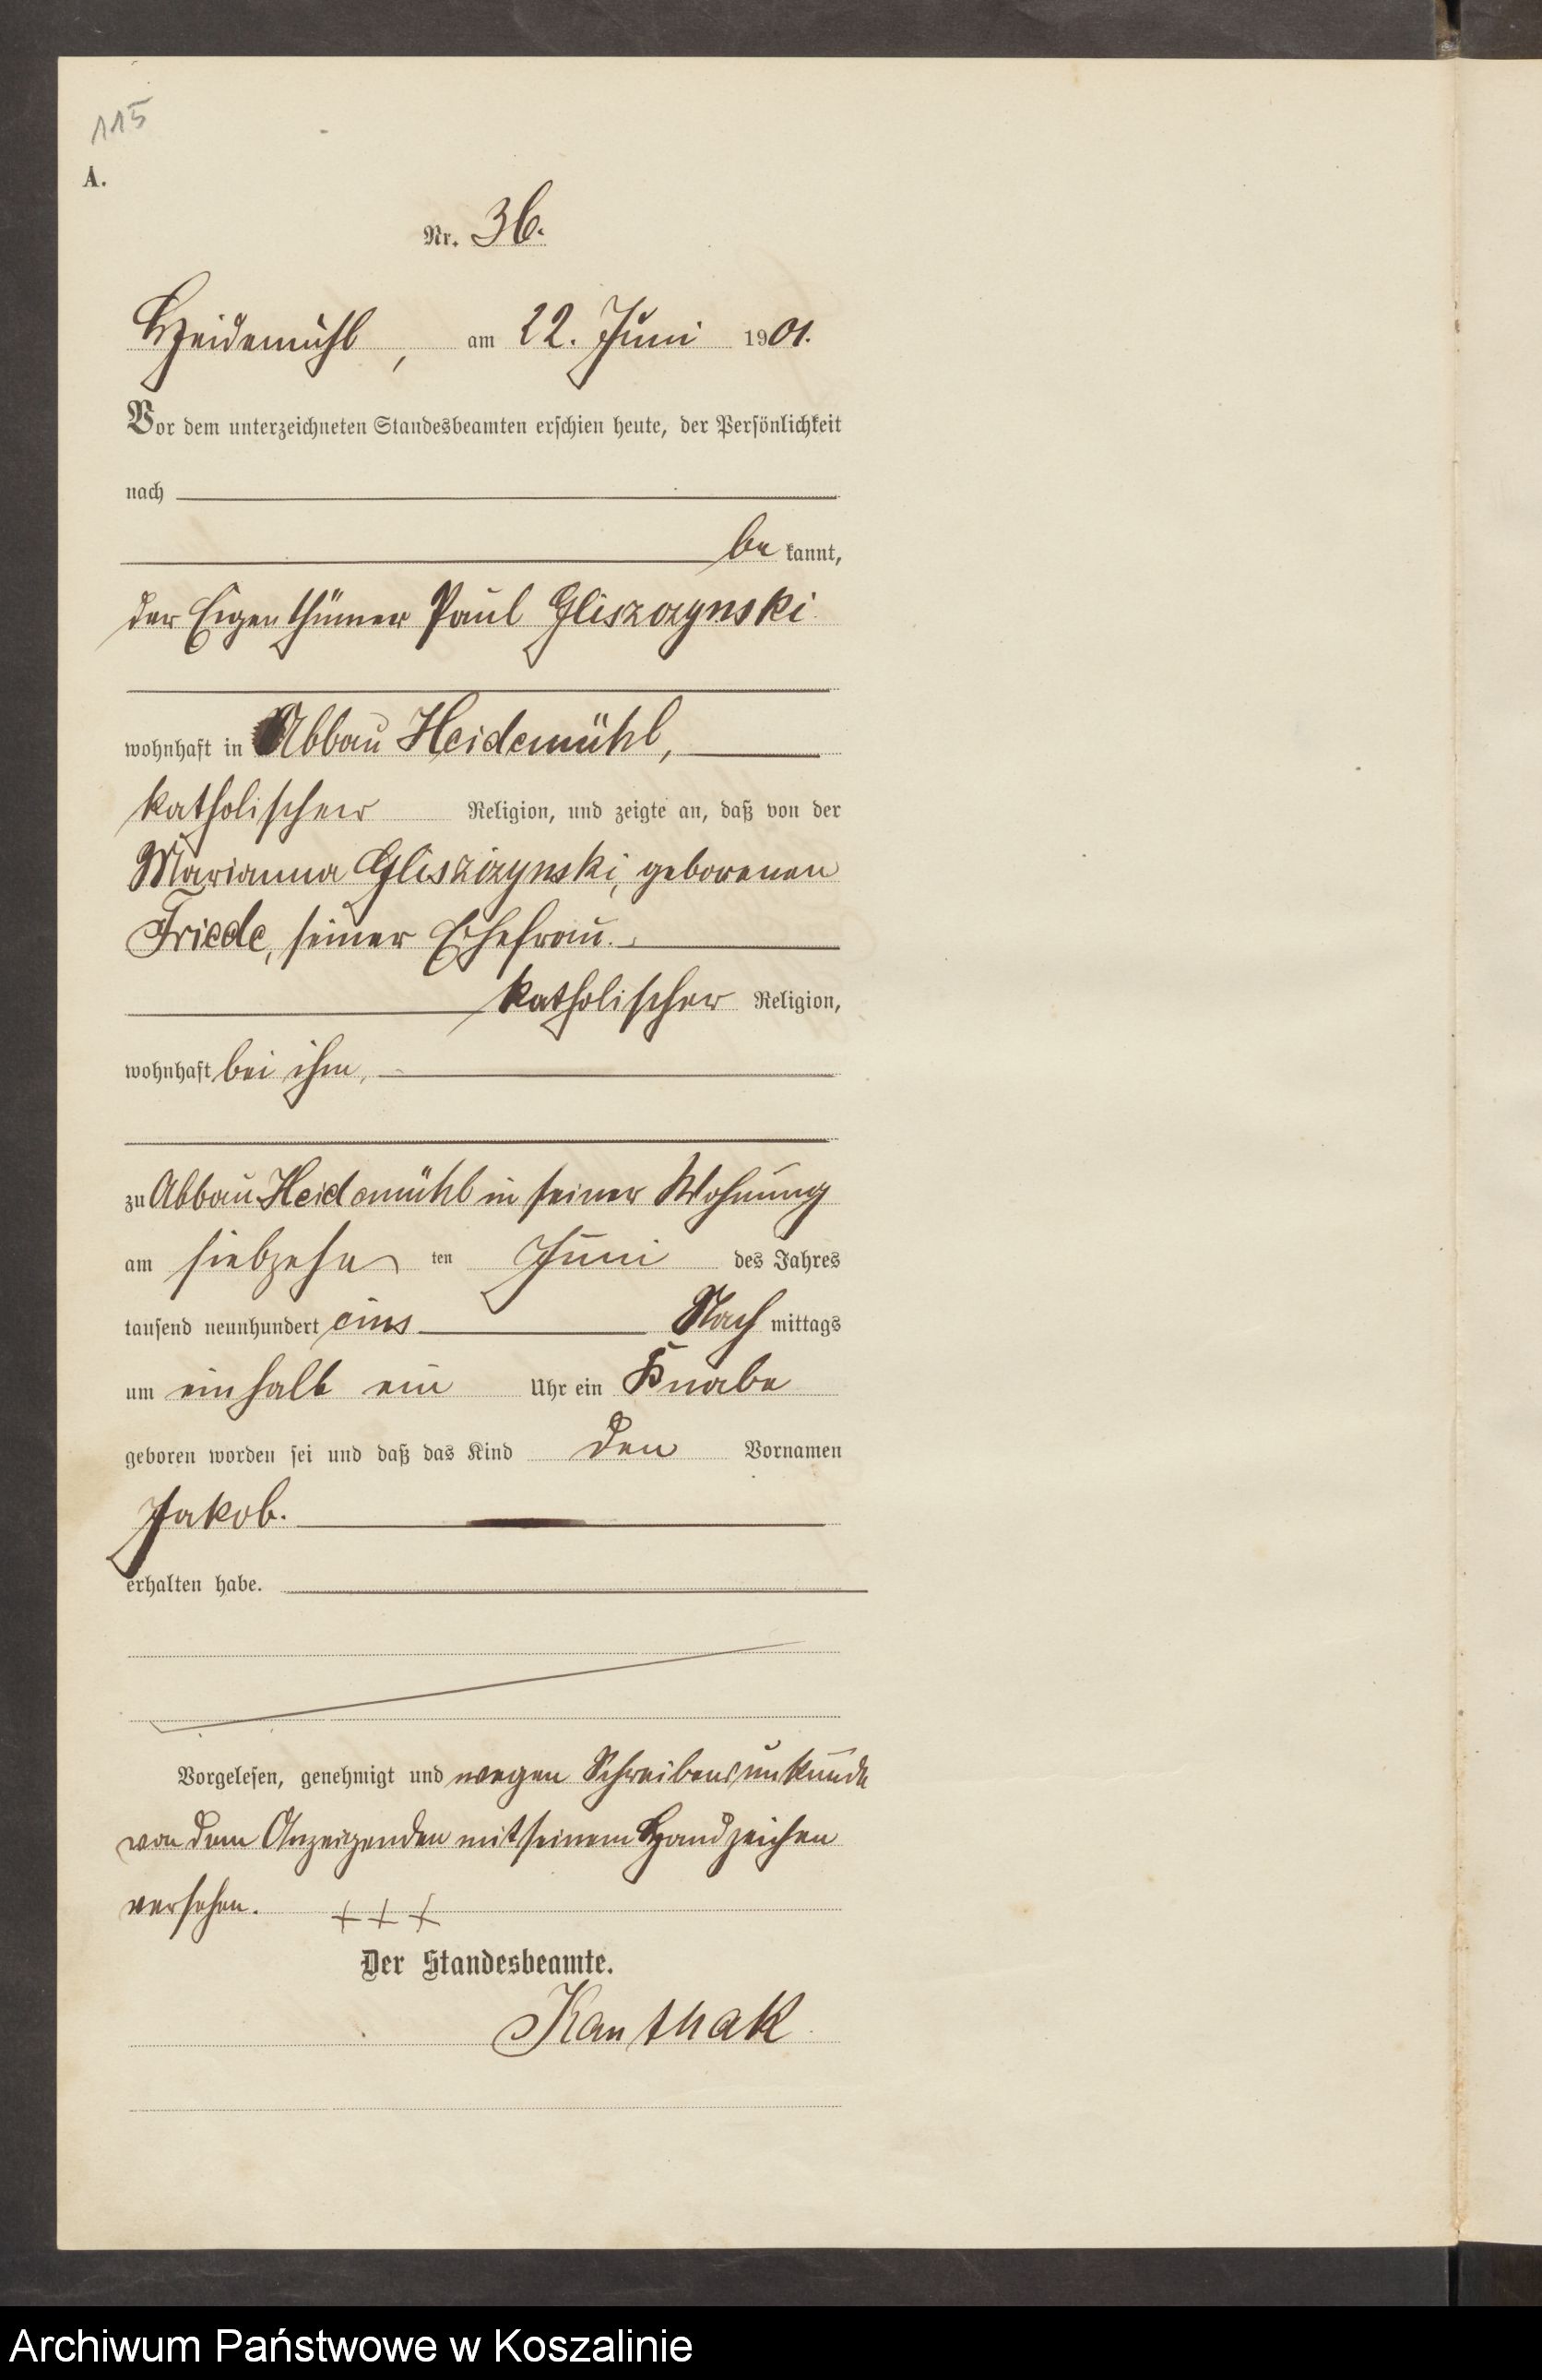 115
A.
Nr. 36.
Heidemühl, am 22. Juni 1901.
Vor dem unterzeichneten Standesbeamten erschien heute, der Persönlichkeit
nach
be kannt,
der Eigenthümer Paul Gliszczynski
wohnhaft in Abbau Heidemühl,
katholischer Religion, und zeigte an, daß von der
Marianna Gliszczynski, geborenen
Friede, seiner Ehefrau.
katholischer Religion,
wohnhaft bei ihm,
zu Abbau Heidemühl in seiner Wohnung
am siebzehn ten Juni des Jahres
tausend neunhundert eins Nach mittags
um einhalb ein Uhr ein Knabe
geboren worden sei und daß das Kind den Vornamen
Jakob.
erhalten habe.
Vorgelesen, genehmigt und wegen Schreibensunkunde
von dem Anzeigenden mit seinem Handzeichen
versehen. +++
Der Standesbeamte.
Kanthak
Archiwum Państwowe w Koszalinie